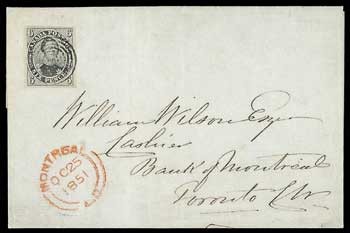 CANADA POSTAGE
SIX PENCE
William Wilson Esqr
Cashier
Bank of Montreal
Toronto C.W.
MONTREAL
OC 25
1851